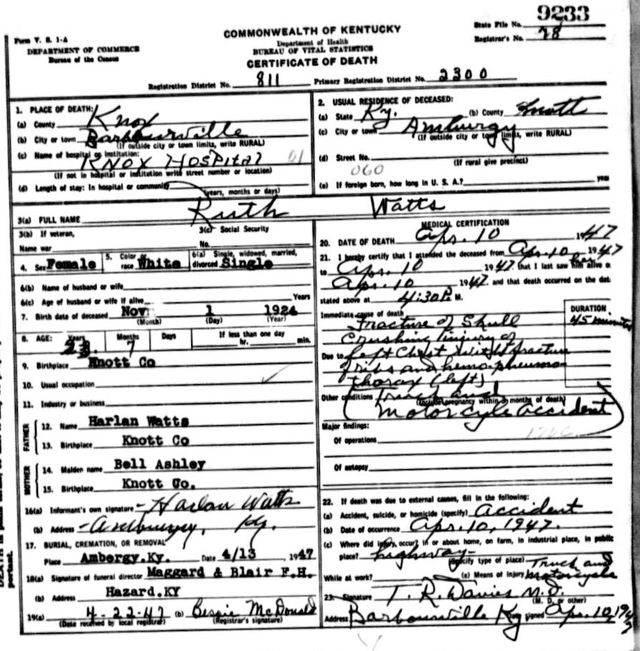 9233
Form V. S. 1-A
COMMONWEALTH OF KENTUCKY
State File No.
DEPARTMENT OF COMMERCE
Department of Health
Registrar's No. 78
Bureau of the Census
BUREAU OF VITAL STATISTICS
CERTIFICATE OF DEATH
Registration District No. 811 Primary Registration District No. 2300
1. PLACE OF DEATH:
(a) County Knox
(b) City or town Barbourville
(If outside city or town limits, write RURAL)
(c) Name of hospital or institution: KNOX HOSPITAL 01
(If not in hospital or institution write street number or location)
(d) Length of stay: In hospital or community
(years, months or days)
2. USUAL RESIDENCE OF DECEASED:
(a) State Ky. (b) County Knott
(c) City or town Amburgy
(If outside city or town limits, write RURAL)
(d) Street No.
060 (If rural give precinct)
(e) If foreign born, how long in U. S. A.? years
3(a) FULL NAME Ruth Watts
3(b) If veteran, 3(c) Social Security
Name war No.
4. Sex Female 5. Color or race White 6(a) Single, widowed, married, divorced Single
6(b) Name of husband or wife
6(c) Age of husband or wife if alive Years
7. Birth date of deceased Nov 1 1924
(Month) (Day) (Year)
8. AGE: Years Months Days If less than one day
7 hr. min.
9. Birthplace Knott Co
10. Usual occupation
11. Industry or business
FATHER
12. Name Harlan Watts
13. Birthplace Knott Co
MOTHER
14. Maiden name Bell Ashley
15. Birthplace Knott Co.
16(a) Informant's own signature Harlan Watts
(b) Address Amburgy, Ky.
17. BURIAL, CREMATION, OR REMOVAL
Place Ambergy.Ky. Date 4/13 1947
18(a) Signature of funeral director Maggard & Blair F.H.
(b) Address Hazard.KY
19(a) 4-22-47 (b) Bessie McDonald
(Date received by local registrar) (Registrar's signature)
MEDICAL CERTIFICATION
20. DATE OF DEATH Apr. 10 1947
21. I hereby certify that I attended the deceased from Apr. 10 1947
to Apr. 10 1947 that I last saw her alive on
Apr. 10 1947 and that death occurred on the date
stated above at 4:30 P. M.
Immediate cause of death DURATION
Fracture of Skull 45 minutes
Crushing injury of
Due to left Chest with fracture
of ribs and hemo pneumo
thorax (left)
Other conditions (truck and
(Include pregnancy within 3 months of death)
motorcycle accident)
Major findings:
Of operations
Of autopsy
22. If death was due to external causes, fill in the following:
(a) Accident, suicide, or homicide (specify) Accident
(b) Date of occurrence Apr. 10, 1947.
(c) Where did injury occur? in or about home, on farm, in industrial place, in public
place? highway
(Specify type of place) Truck and
While at work? (e) Means of injury Motorcycle
23. Signature T. R. Davies M.D.
(M. D. or other)
Address Barbourville Ky Date signed Apr. 10, 1947